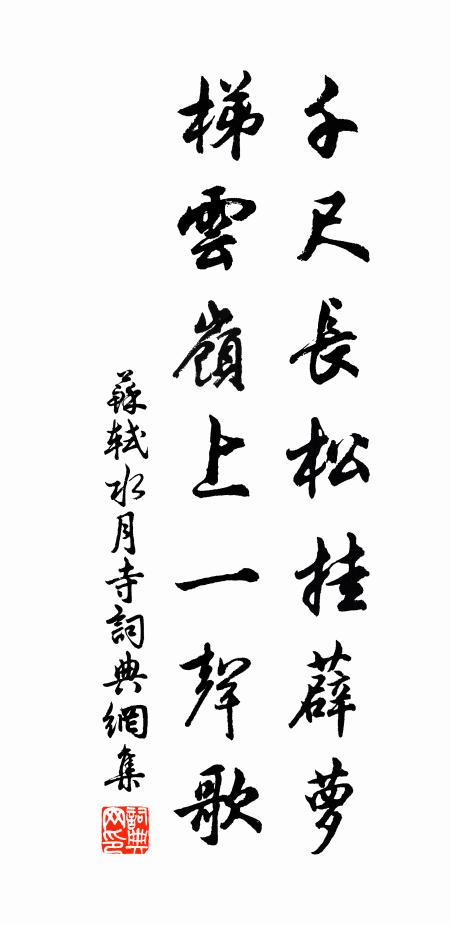 千尺長松挂薜萝
梯雲嶺上一聲歌
蘇軾水月寺詞典網集
詞典网印